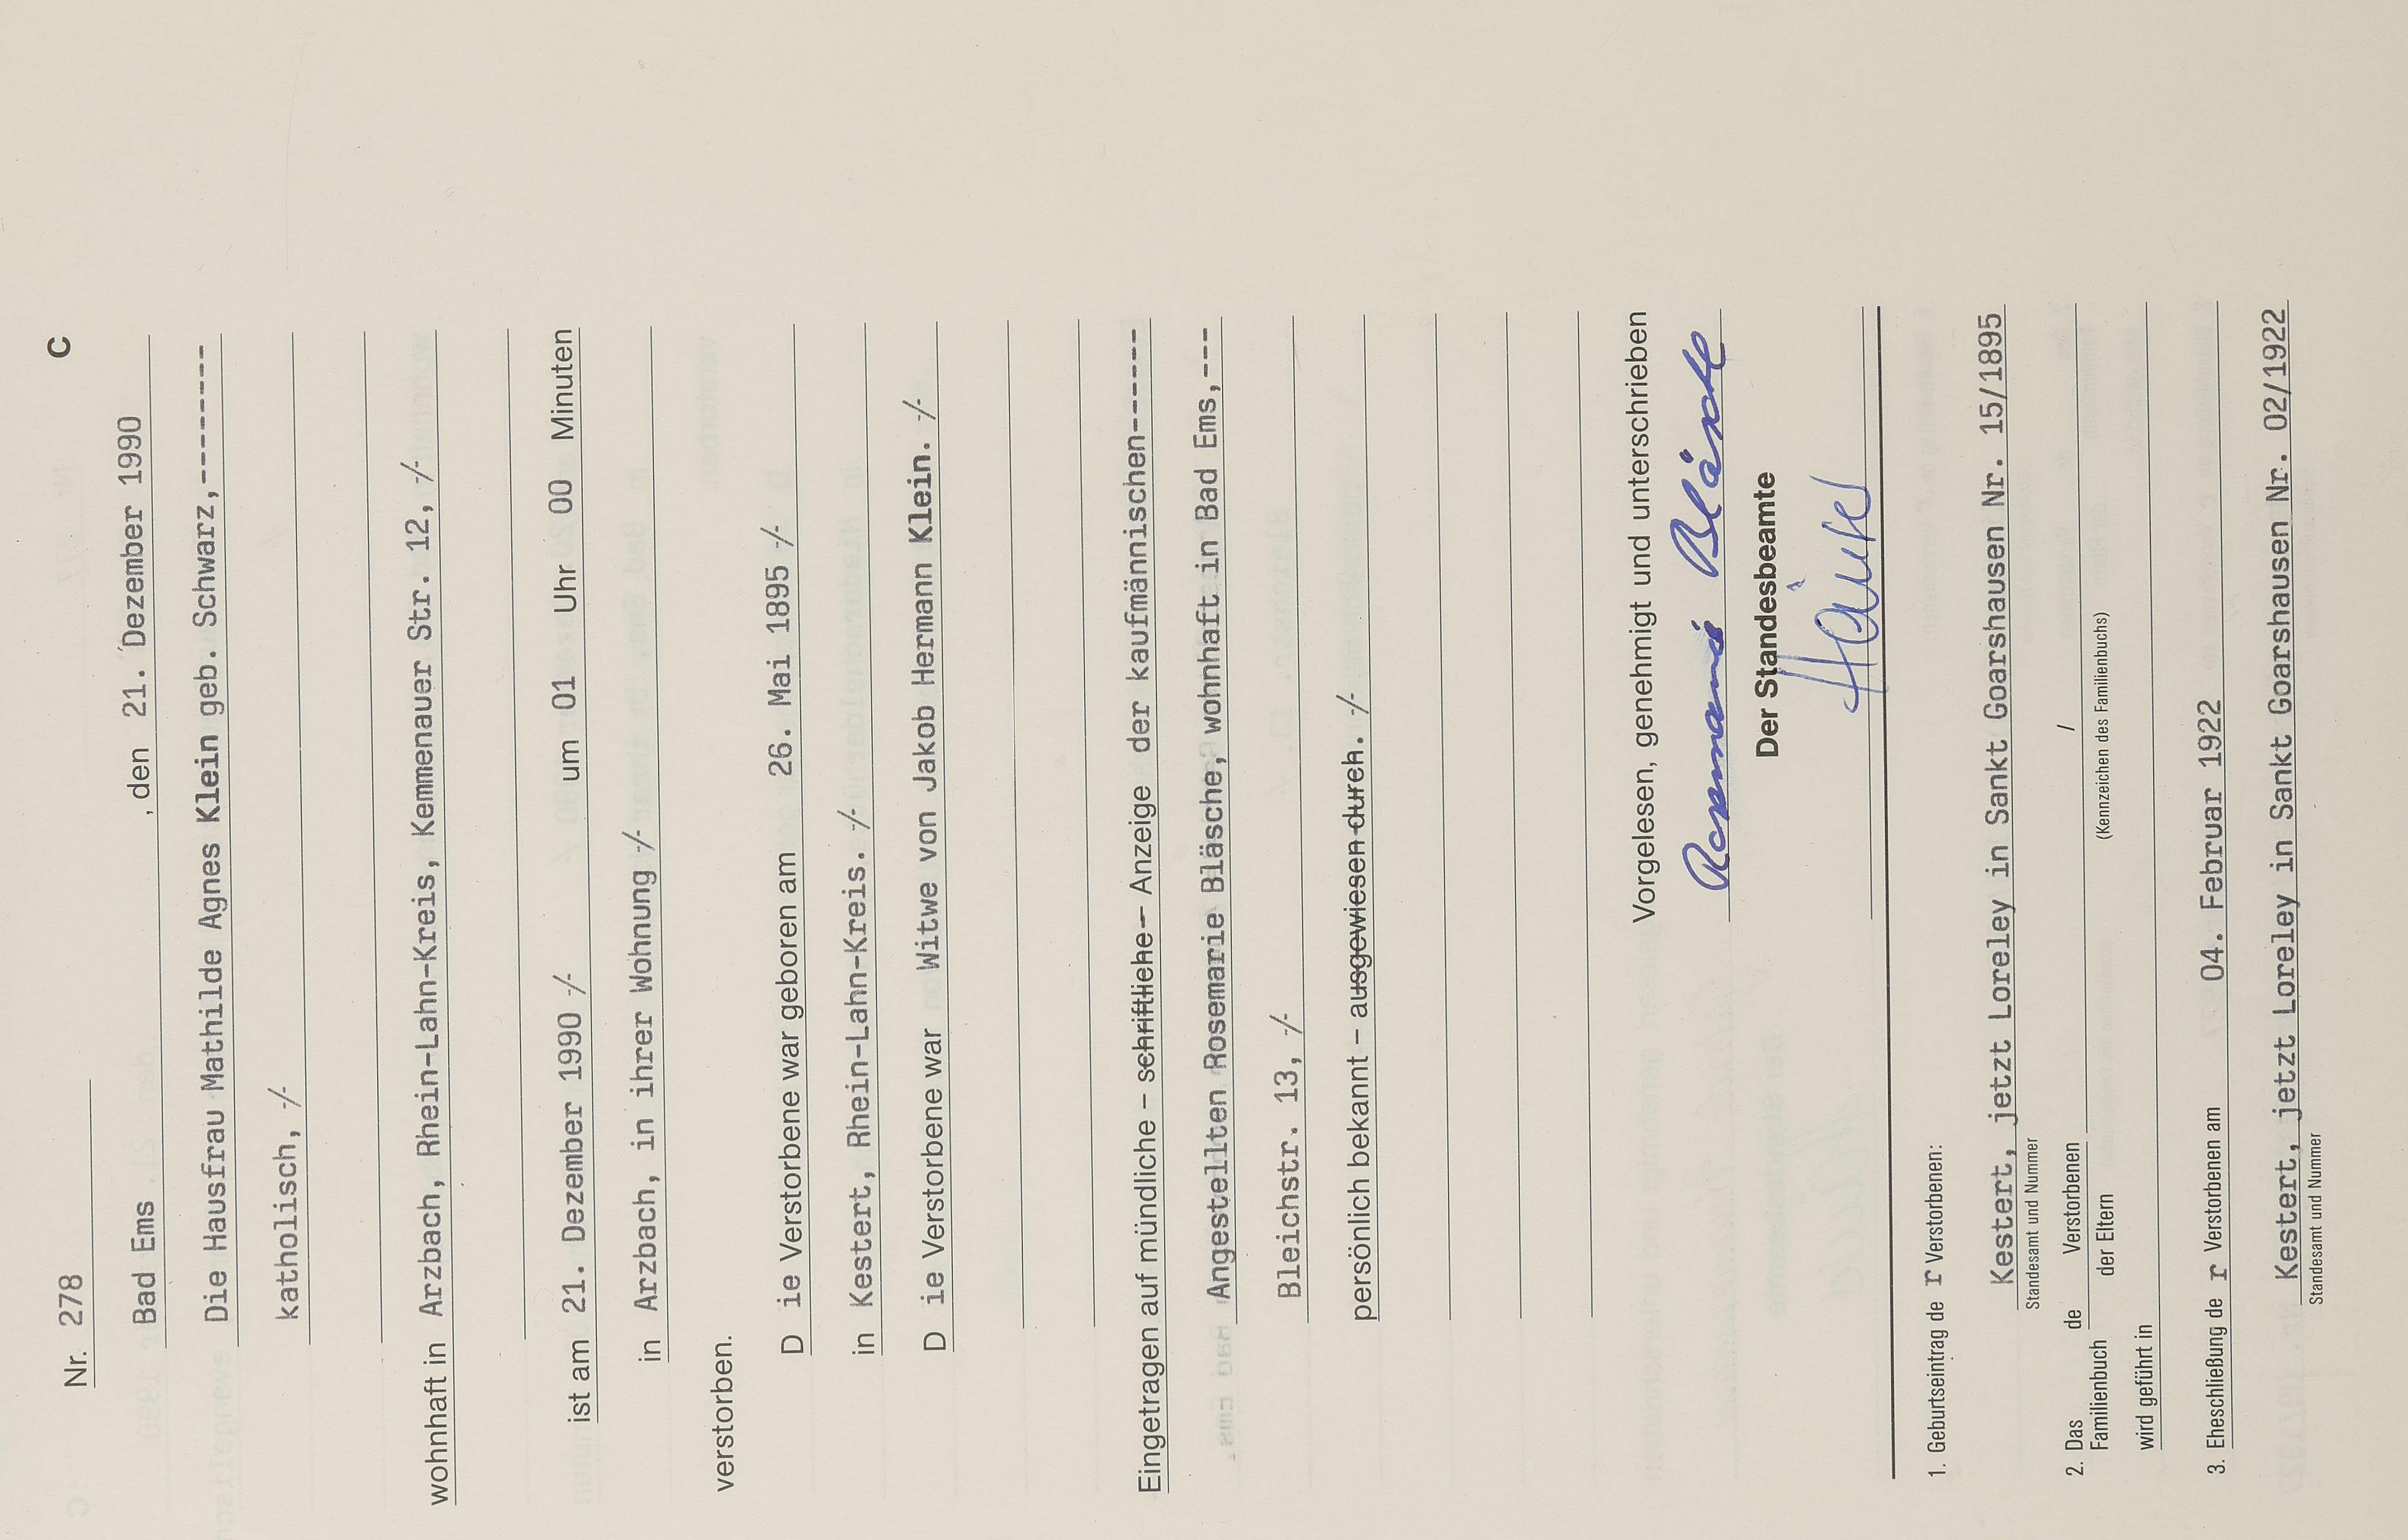 C
Nr. 278
Bad Ems, den 21. Dezember 1990
Die Hausfrau Mathilde Agnes Klein geb. Schwarz,--------
katholisch, -/-
wohnhaft in Arzbach, Rhein-Lahn-Kreis, Kemmenauer Str. 12, -/-
ist am 21. Dezember 1990 -/- um 01 Uhr 00 Minuten
in Arzbach, in ihrer Wohnung -/-
verstorben.
D ie Verstorbene war geboren am 26. Mai 1895 -/-
in Kestert, Rhein-Lahn-Kreis. -/-
D ie Verstorbene war Witwe von Jakob Hermann Klein. -/-
Eingetragen auf mündliche – schriftliche – Anzeige der kaufmännischen-------
Angestellten Rosemarie Bläsche, wohnhaft in Bad Ems,---
Bleichstr. 13, -/-
persönlich bekannt – ausgewiesen durch. -/-
Vorgelesen, genehmigt und unterschrieben
Rosemarie Bläsche
Der Standesbeamte
1. Geburtseintrag de r Verstorbenen:
Kestert, jetzt Loreley in Sankt Goarshausen Nr. 15/1895
Standesamt und Nummer
2. Das Familienbuch de Verstorbenen /
der Eltern
(Kennzeichen des Familienbuchs)
wird geführt in
3. Eheschließung de r Verstorbenen am 04. Februar 1922
Kestert, jetzt Loreley in Sankt Goarshausen Nr. 02/1922
Standesamt und Nummer